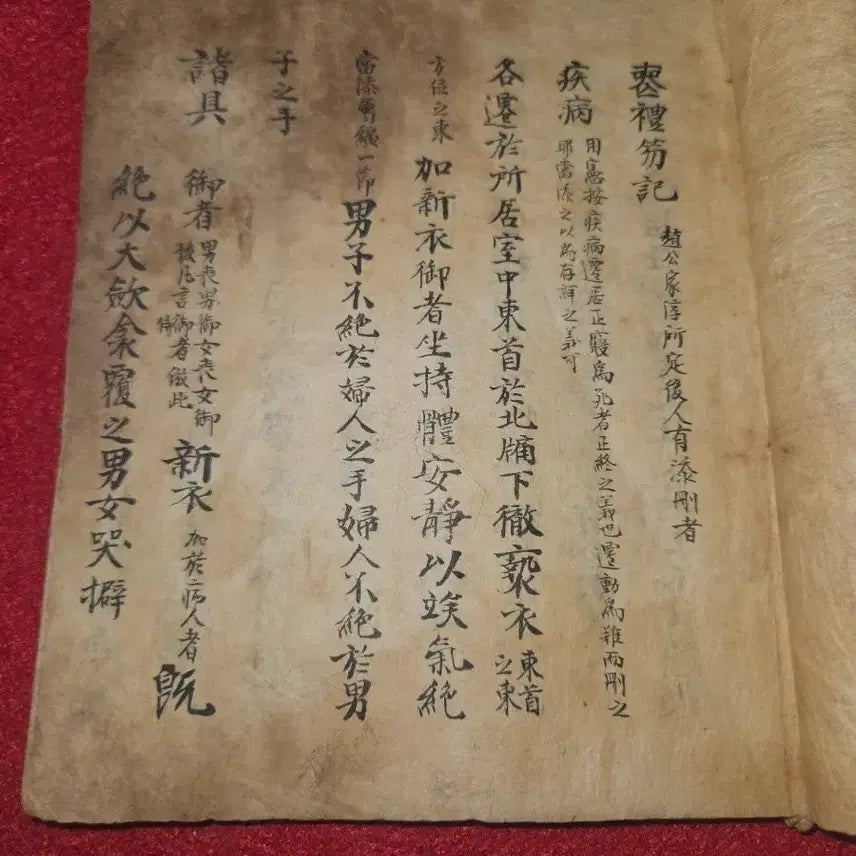 喪禮笏記 趙公家淳所定後人有添刪者
疾病 用憲按疾病遷居正寢爲死者正終之義也遷動爲難而刪之
耶當添之以爲存詳之義可
各遷於所居室中東首於北牖下徹褻衣 東首之東
方位之東 加新衣御者坐持體安靜以竢氣絶
當添屬纊一節 男子不絶於婦人之手婦人不絶於男
子之手
諸具 御者 男喪男御女喪女御後凡言御者倣此 侍 新衣 加於病人者 既
絶以大斂衾覆之男女哭擗